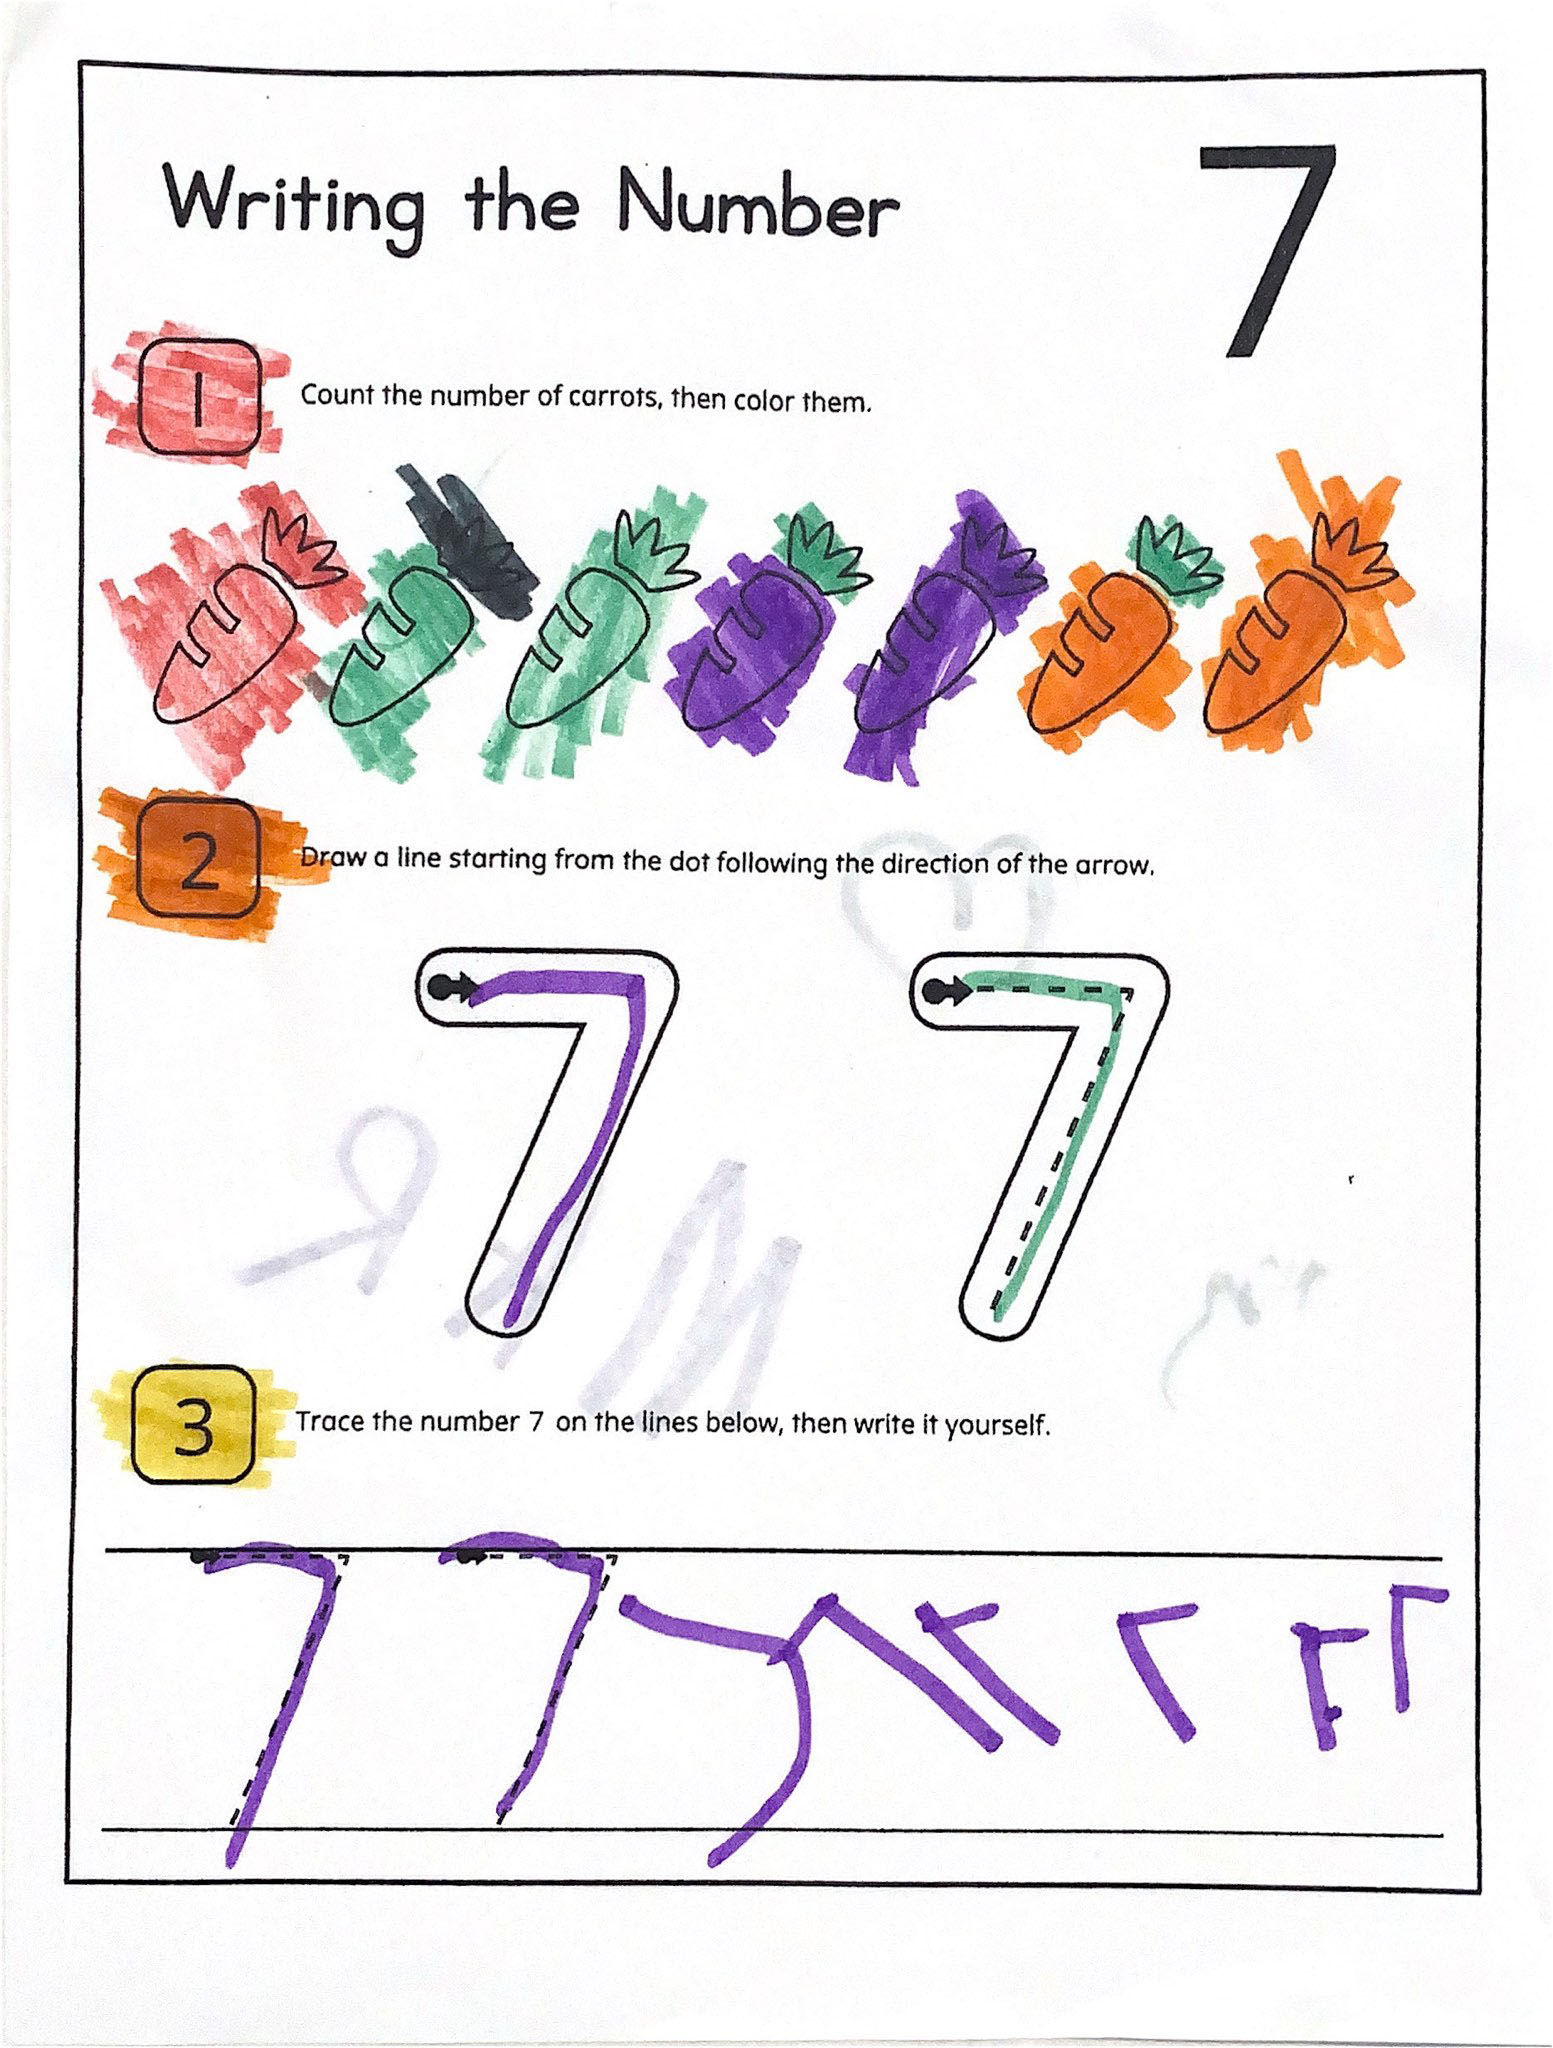 Writing the Number 7
1 Count the number of carrots, then color them.
2 Draw a line starting from the dot following the direction of the arrow.
7 7
3 Trace the number 7 on the lines below, then write it yourself.
7 7 7